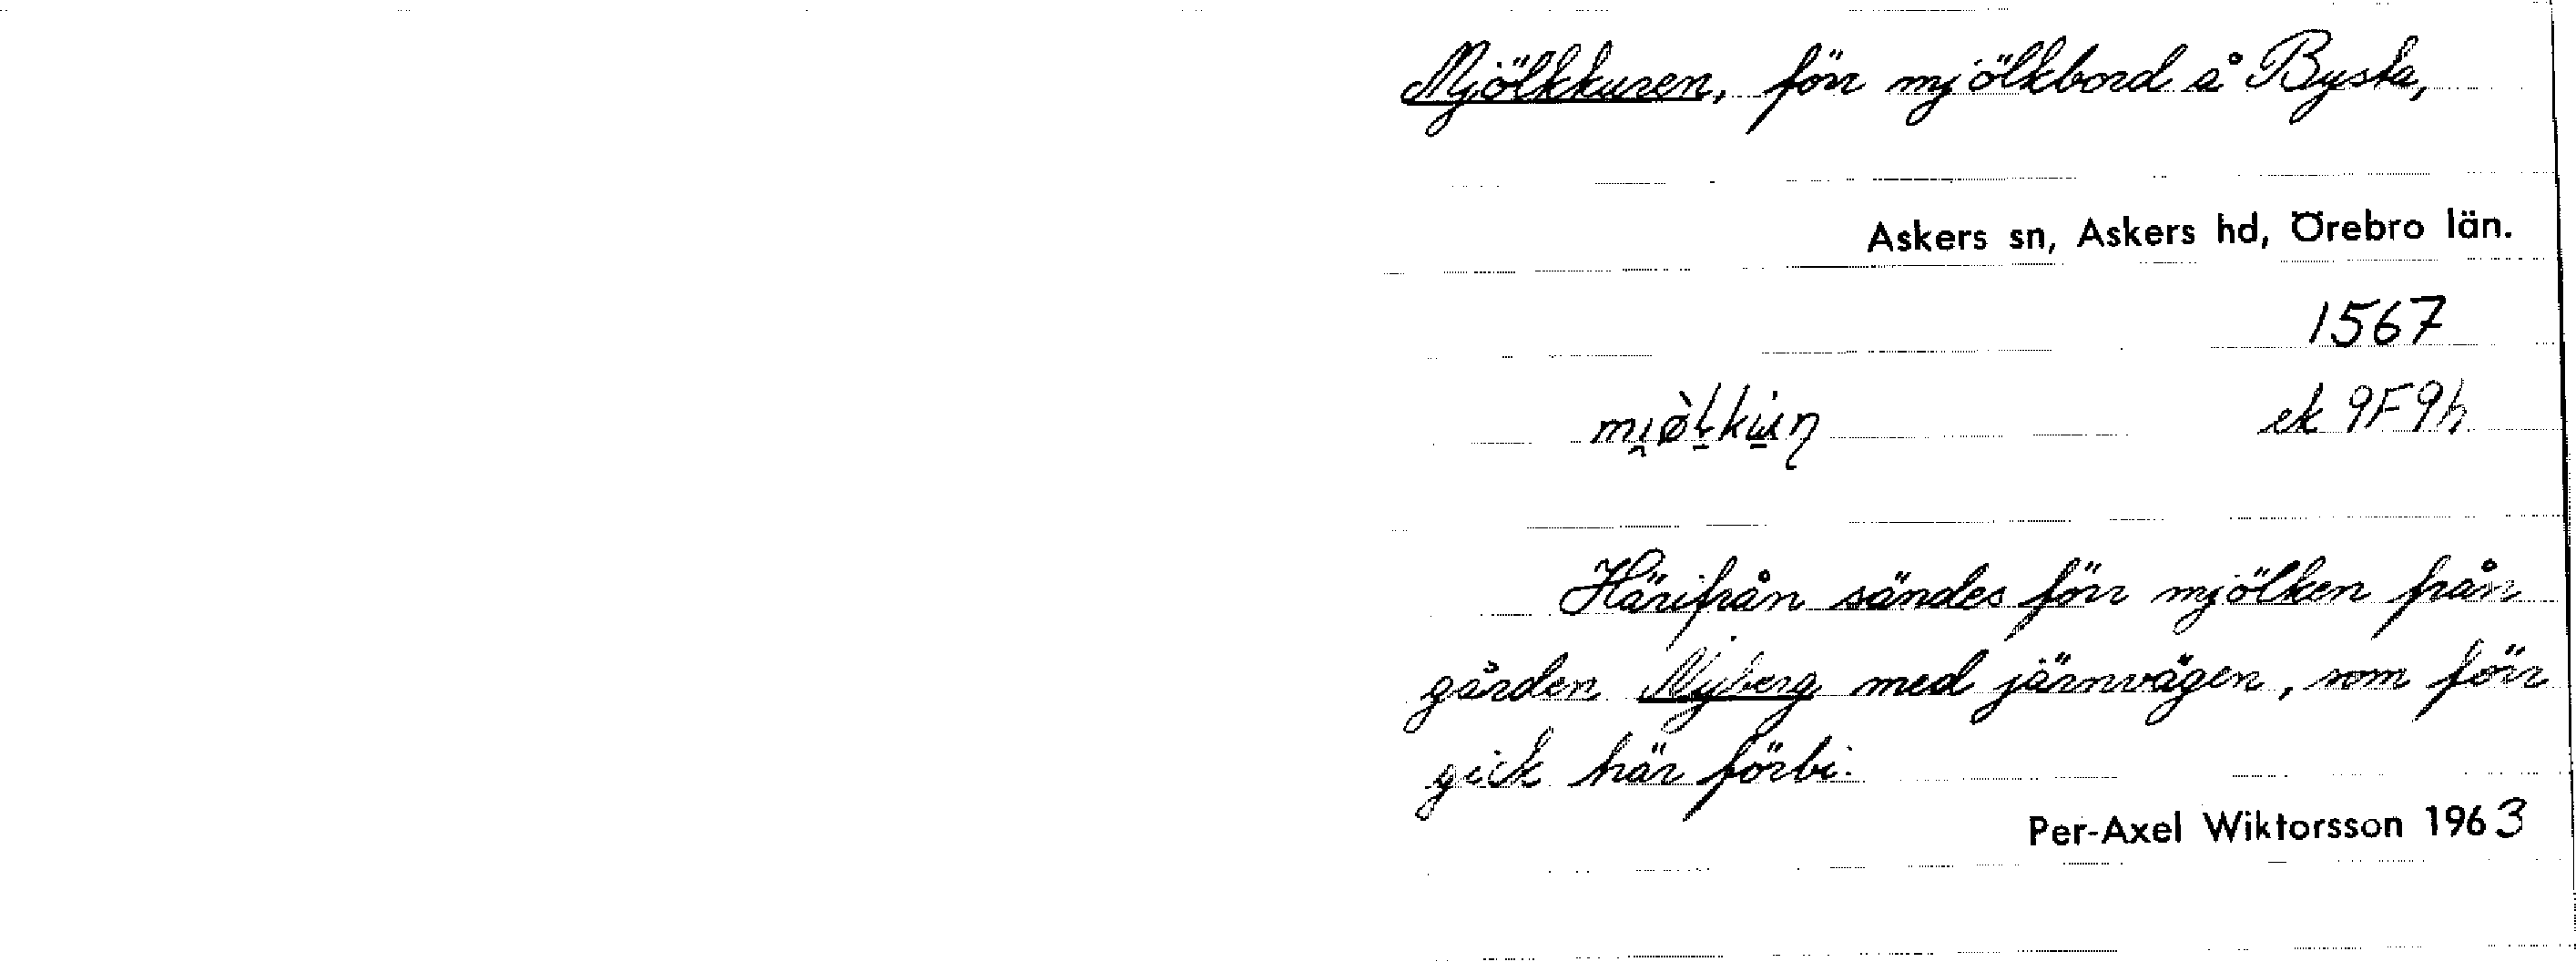 Mjölkkuren, förr mjölkbord å Bysta,
Askers sn, Askers hd, Örebro län.
1567
ek 9F9h
Härifrån sändes förr mjölken från
gården Nyberg med järnvägen, som förr
gick här förbi.
Per-Axel Wiktorsson 1963